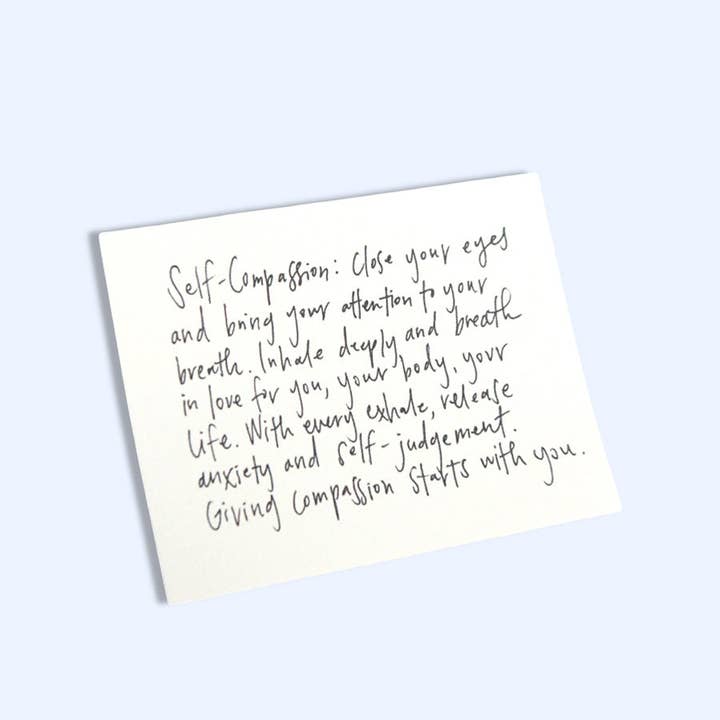 Self-Compassion: Close your eyes
and bring your attention to your
breath. Inhale deeply and breath
in love for you, your body, your
life. With every exhale, release
anxiety and self-judgement.
Giving compassion starts with you.